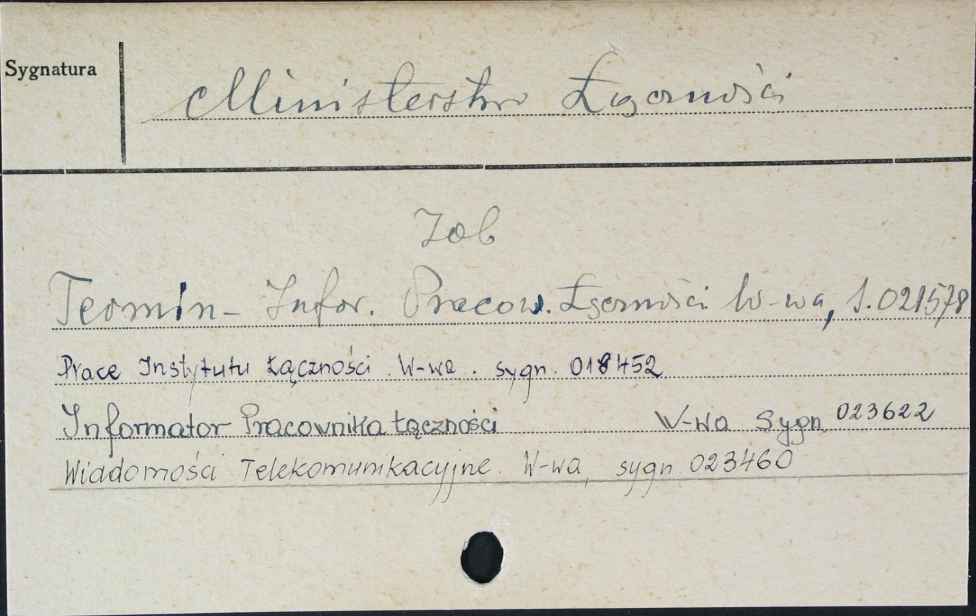 Sygnatura
Ministerstwo Łączności
Zob
Termin- Infor. Pracow. Łączności W-wa, S. 021578
Prace Instytutu Łączności W-wa. sygn. 018452
Informator Pracownika Łączności W-wa Sygn. 023622
Wiadomości Telekomunikacyjne. W-wa, sygn 023460